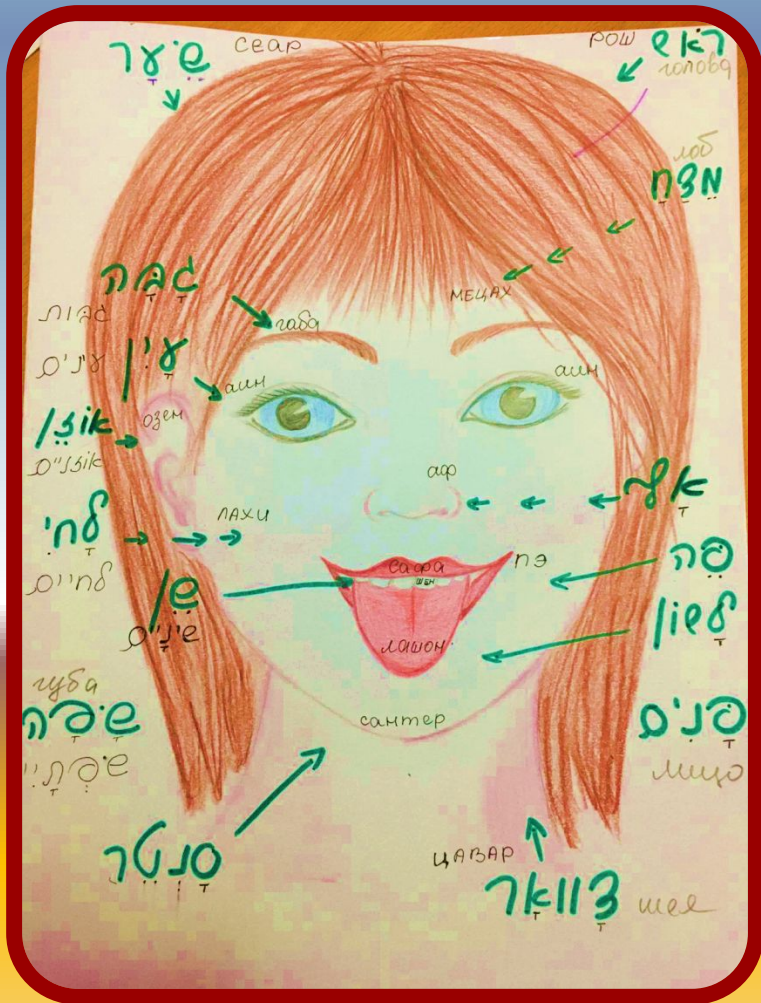 שֵׂעָר
сеар
рош
רֹאשׁ
голова
лоб
מֵצַח
мецах
גַבָּה
габа
גבות
עַיִן
עינים
аин
аин
озем
אוֹזֶן
אוזניים
аф
אַף
לֶחִי
лахи
לחיים
сафа
шен
пэ
פֶּה
שֵׁן
שיניים
лашон
לָשׁוֹן
губа
שָׂפָה
сантер
פָּנִים
лицо
סַנְטֵר
цавар
צַוואָר
шея